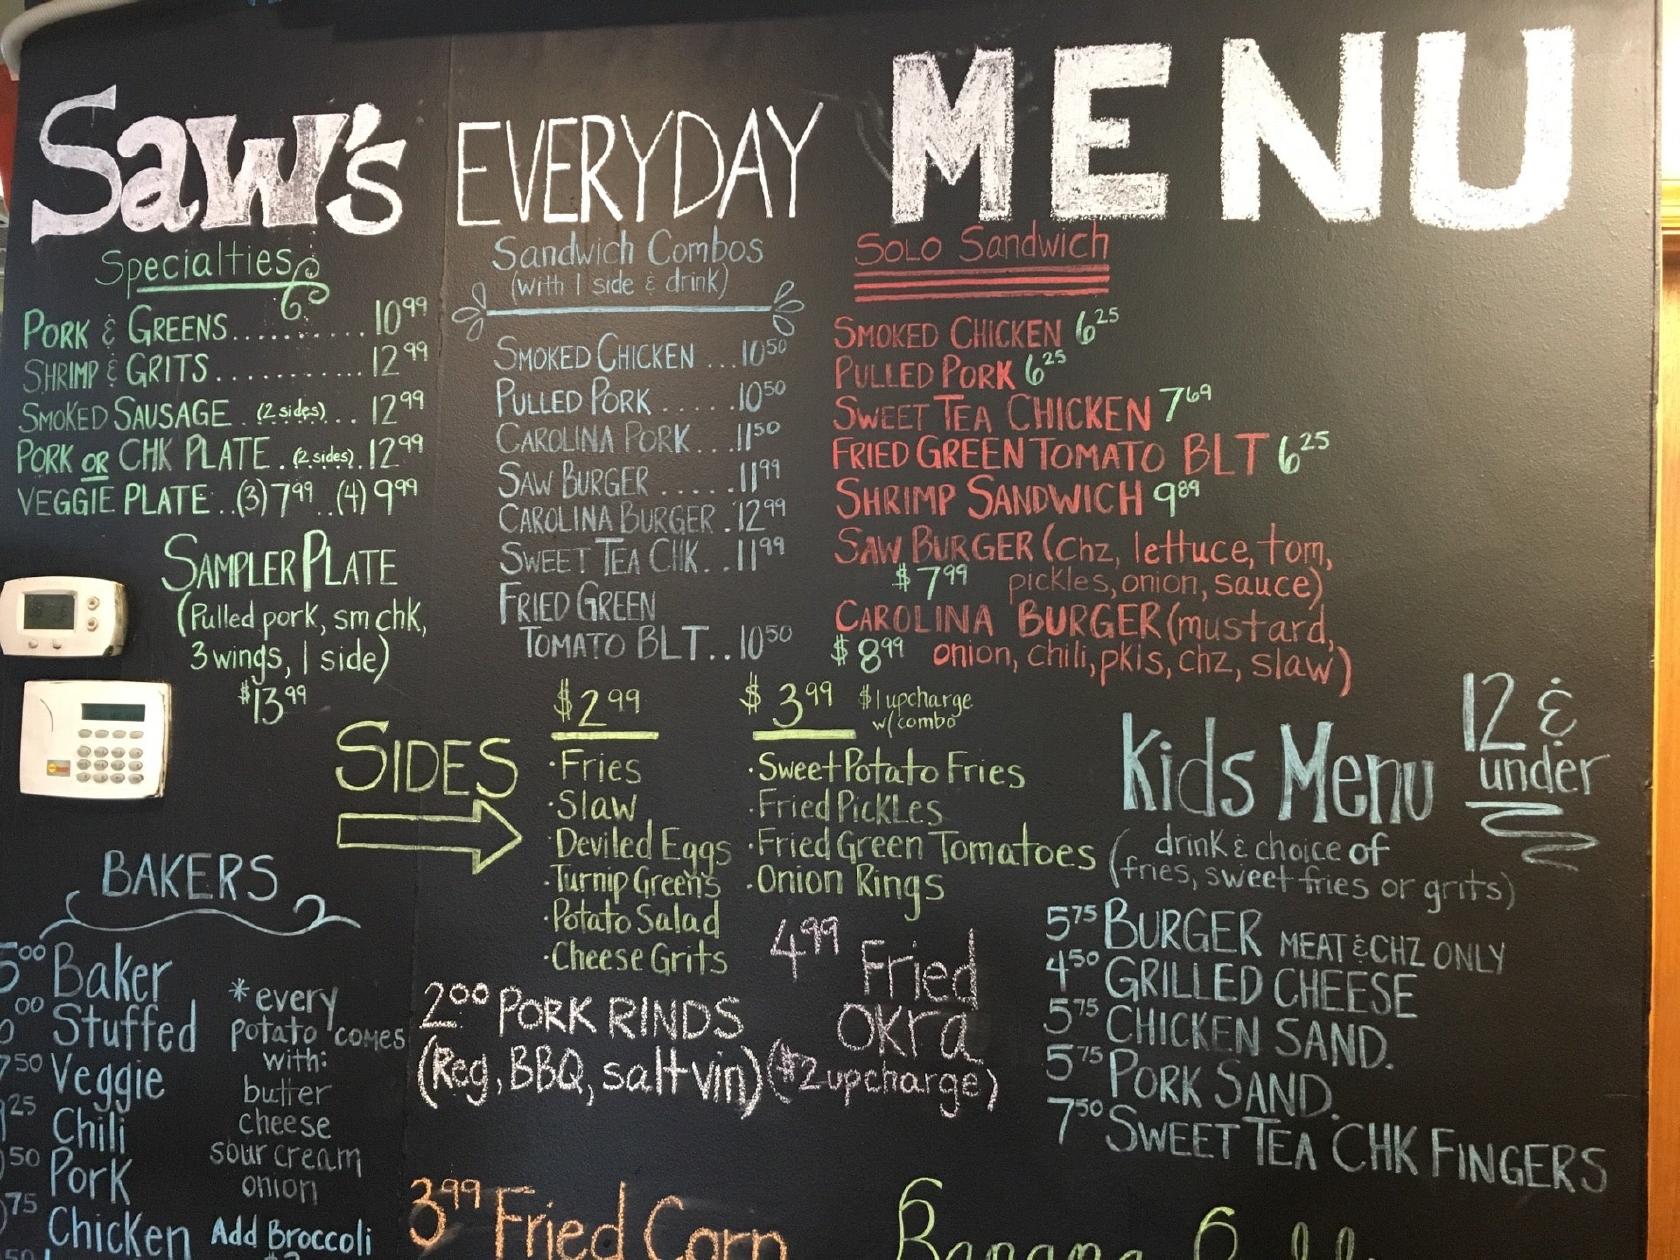 Saw's EVERYDAY MENU
Specialties
PORK & GREENS........ 10.99
SHRIMP & GRITS........... 12.99
SMOKED SAUSAGE . (2 sides)... 12.99
PORK OR CHK PLATE . (2 sides). 12.99
VEGGIE PLATE..(3) 7.99 ..(4) 9.99
SAMPLER PLATE
(Pulled pork, sm chk,
3 wings, 1 side)
$13.99
Sandwich Combos
(with 1 side & drink)
SMOKED CHICKEN ...10.50
PULLED PORK ......10.50
CAROLINA PORK...11.50
SAW BURGER .....11.99
CAROLINA BURGER .12.99
SWEET TEA CHK...11.99
FRIED GREEN
TOMATO BLT..10.50
SOLO Sandwich
SMOKED CHICKEN 6.25
PULLED PORK 6.25
SWEET TEA CHICKEN 7.69
FRIED GREEN TOMATO BLT 6.25
SHRIMP SANDWICH 9.89
SAW BURGER (chz, lettuce, tom,
$7.99 pickles, onion, sauce)
CAROLINA BURGER (mustard,
$8.99 onion, chili, pkls, chz, slaw)
SIDES
$2.99
·Fries
·Slaw
·Deviled Eggs
·Turnip Greens
·Potato Salad
·Cheese Grits
$3.99 $1 upcharge
w/combo
·Sweet Potato Fries
·Fried Pickles
·Fried Green Tomatoes
·Onion Rings
2.00 PORK RINDS
(Reg, BBQ, salt vin)
4.99 Fried
Okra
($2 upcharge)
Kids Menu 12 &
under
(drink & choice of
fries, sweet fries or grits)
5.75 BURGER MEAT & CHZ ONLY
4.50 GRILLED CHEESE
5.75 CHICKEN SAND.
5.75 PORK SAND.
7.50 SWEET TEA CHK FINGERS
BAKERS
5.00 Baker
Stuffed
7.50 Veggie
Chili
Pork
Chicken
*every
potato comes
with:
butter
cheese
sour cream
onion
Add Broccoli
3.99 Fried Corn
Banana